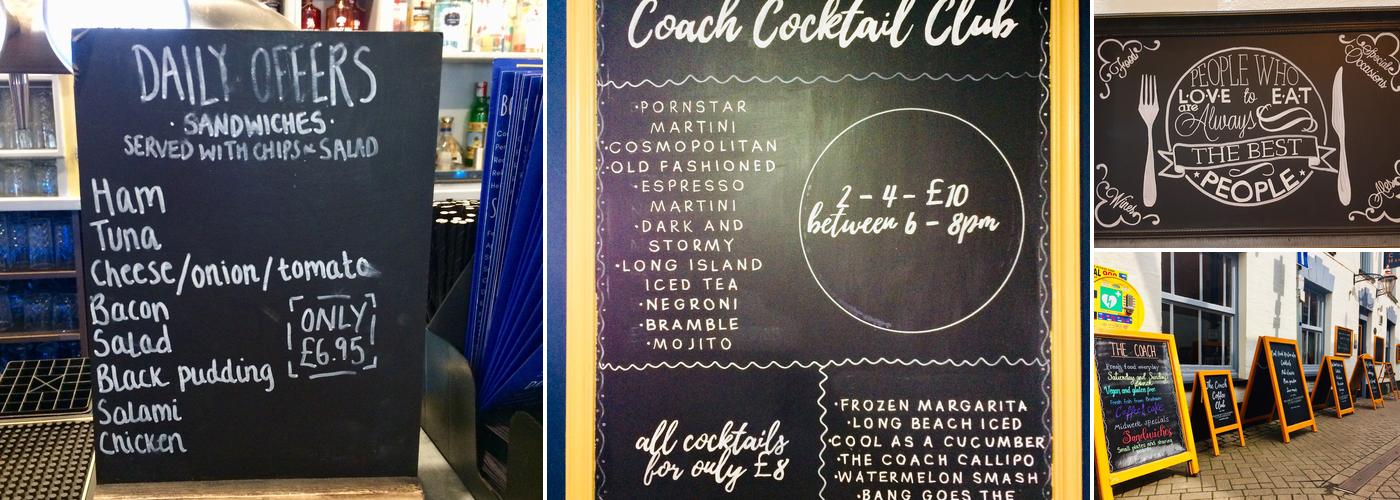 DAILY OFFERS
· SANDWICHES ·
SERVED WITH CHIPS & SALAD
Ham
Tuna
Cheese/onion/tomato
Bacon
Salad
Black pudding
Salami
Chicken
ONLY
£6.95
Coach Cocktail Club
·PORNSTAR
MARTINI
·COSMOPOLITAN
·OLD FASHIONED
·ESPRESSO
MARTINI
·DARK AND
STORMY
·LONG ISLAND
ICED TEA
·NEGRONI
·BRAMBLE
·MOJITO
2 - 4 - £10
between 6 - 8pm
all cocktails
for only £8
·FROZEN MARGARITA
·LONG BEACH ICED
·COOL AS A CUCUMBER
·THE COACH CALLIPO
·WATERMELON SMASH
·BANG GOES THE
Food
Special
Occasions
PEOPLE WHO
LOVE to EAT
are Always
THE BEST
PEOPLE
Wines
THE COACH
Fresh food everyday
Saturday and Sunday
Vegan and gluten free
Fresh fish from Brixham
Coffee / cafe
Midweek specials
Sandwiches
Small plates and sharing
The Coach
Coffee
Club